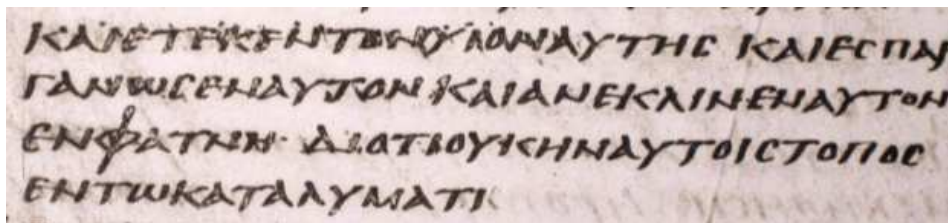 ΚΑΙΕΤΕΚΕΝΤΟΝΥΙΟΝΑΥΤΗϹ ΚΑΙΕϹΠΑΡ
ΓΑΝΩϹΕΝΑΥΤΟΝΚΑΙΑΝΕΚΛΙΝΕΝΑΥΤΟΝ
ΕΝΦΑΤΝΗ· ΔΙΟΤΙΟΥΚΗΝΑΥΤΟΙϹΤΟΠΟϹ
ΕΝΤΩΚΑΤΑΛΥΜΑΤΙ